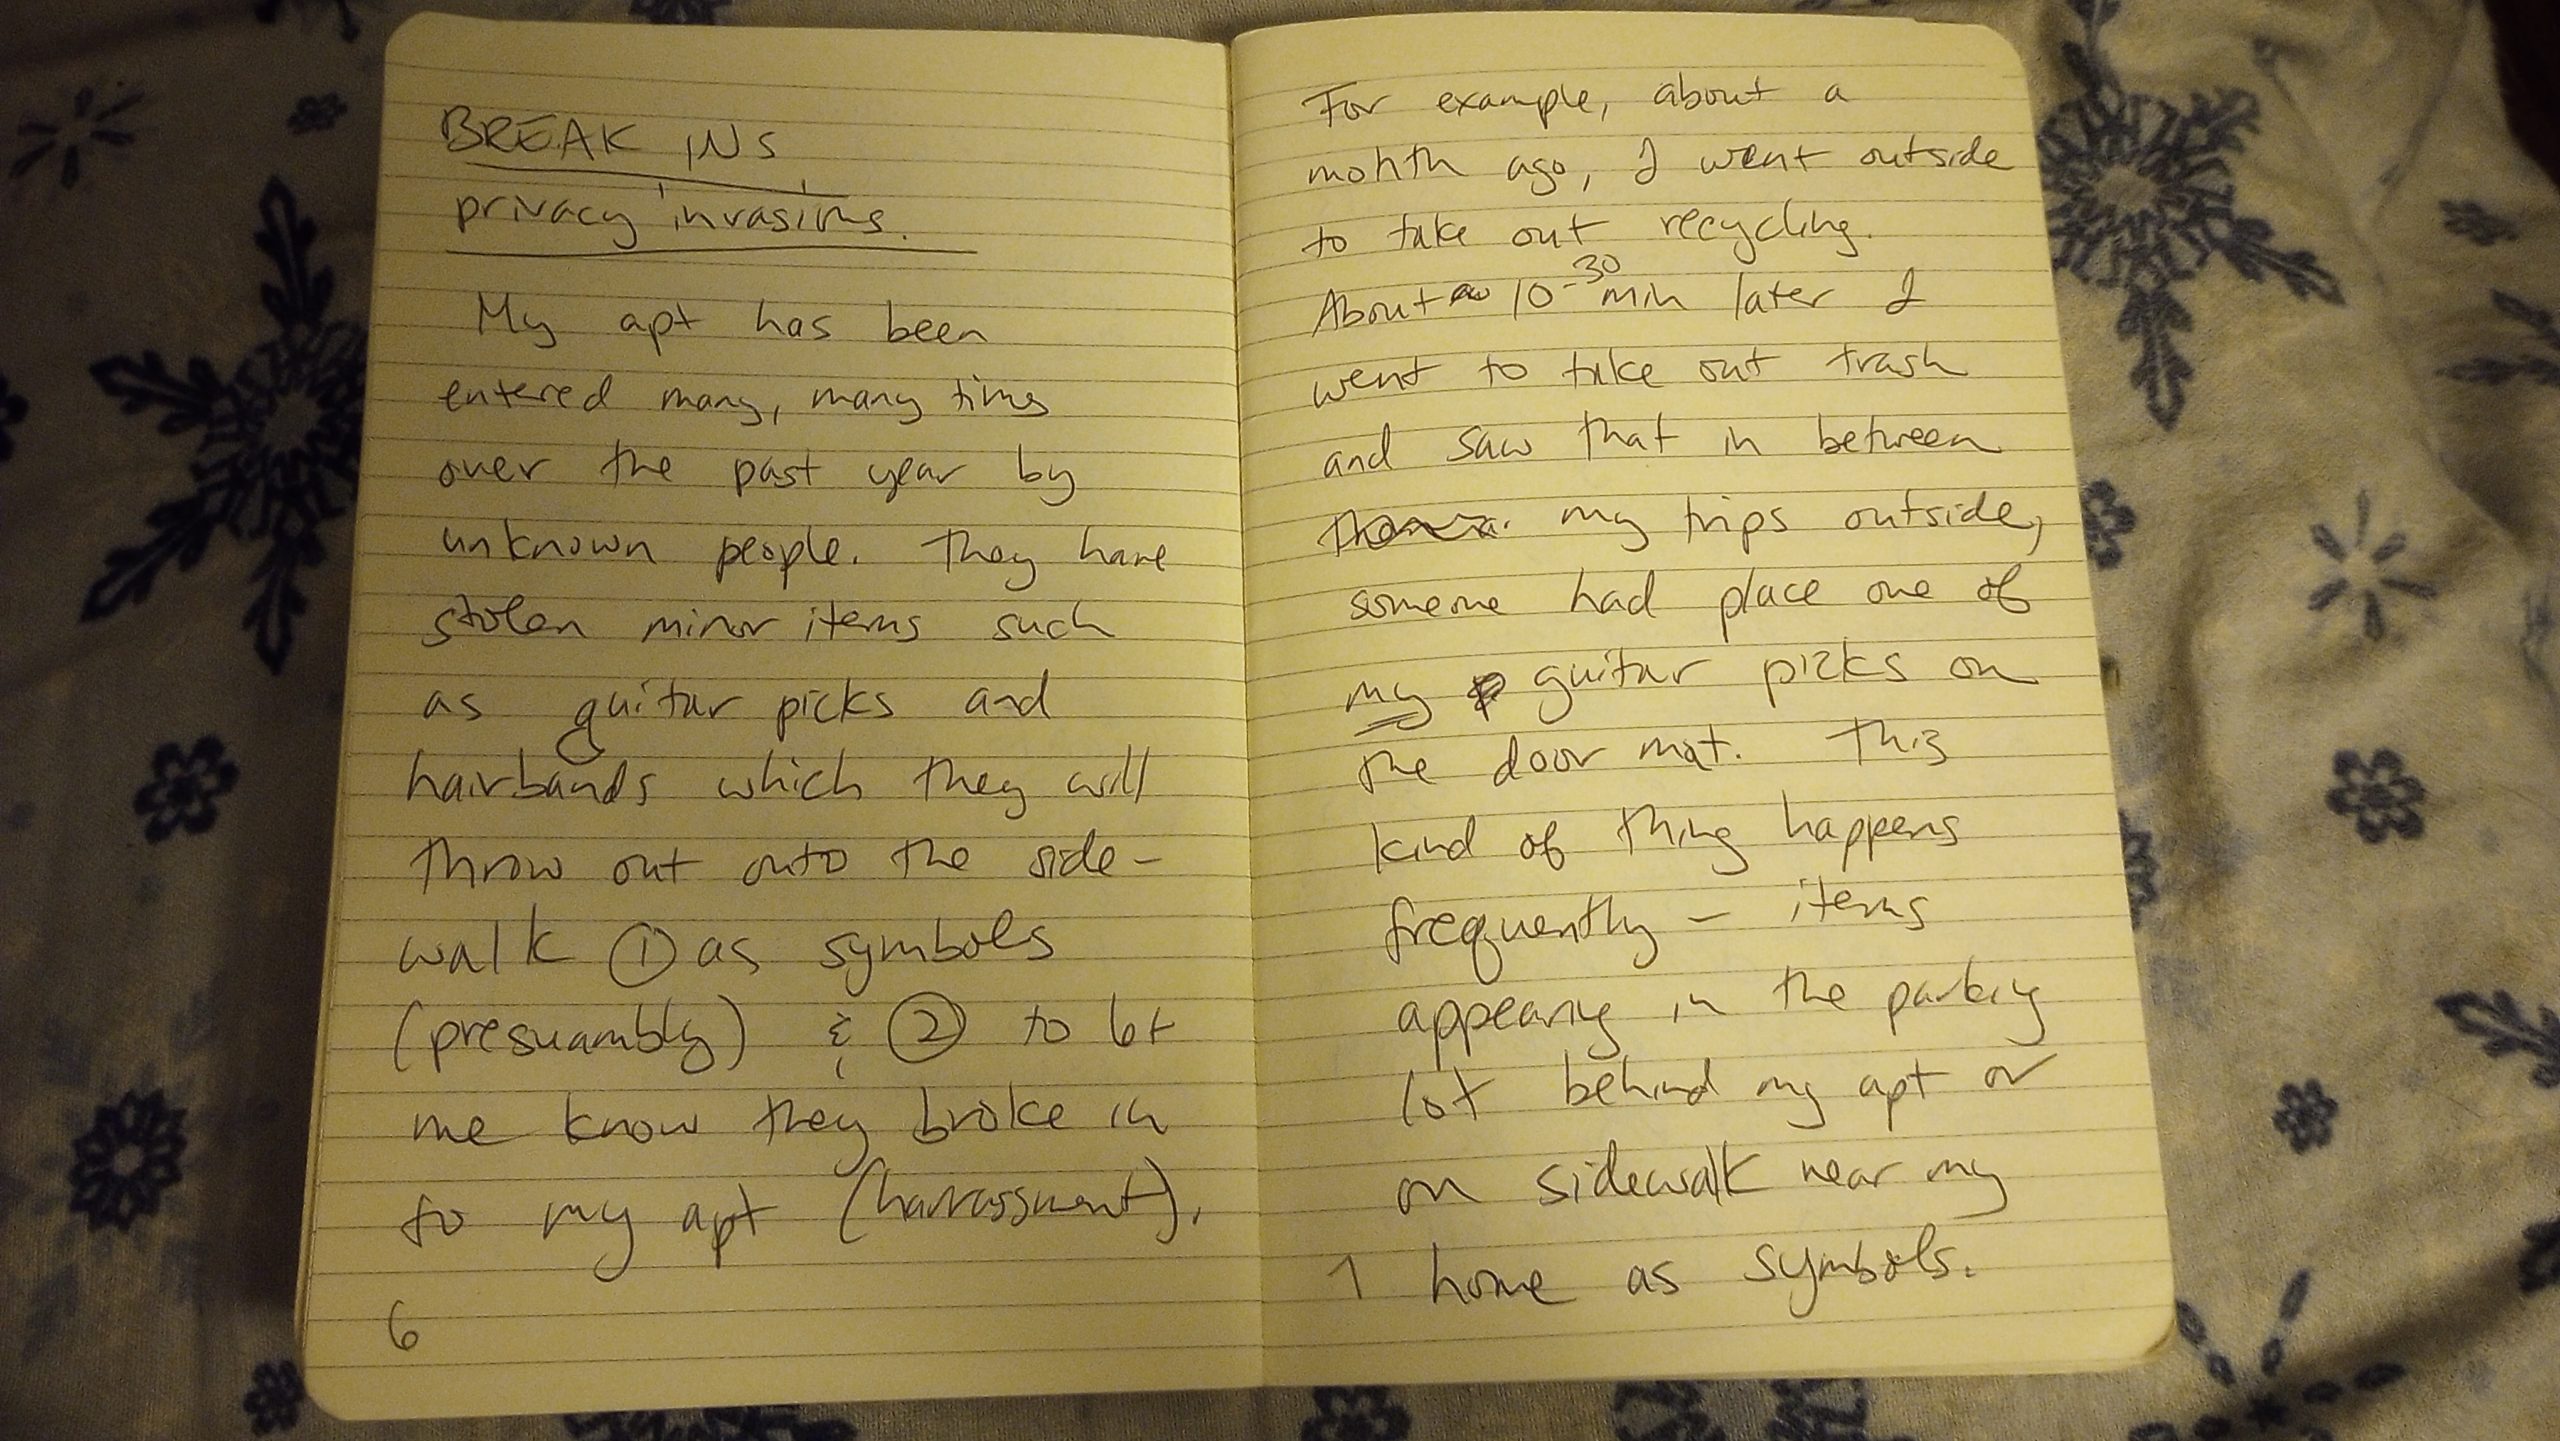 BREAK INS,
privacy invasions.
My apt has been
entered many, many times
over the past year by
unknown people. They have
stolen minor items such
as guitar picks and
hairbands which they will
throw out onto the side-
walk ① as symbols
(presuambly) & ② to let
me know they broke in
to my apt (harrassment).
6
For example, about a
mohth ago, I went outside
to take out recycling.
About 10-30 min later I
went to take out trash
and saw that in between
my trips outside,
someone had place one of
my guitar picks on
the door mat. This
kind of thing happens
frequently - items
appearing in the parking
lot behind my apt or
on sidewalk near my
home as symbols.
7